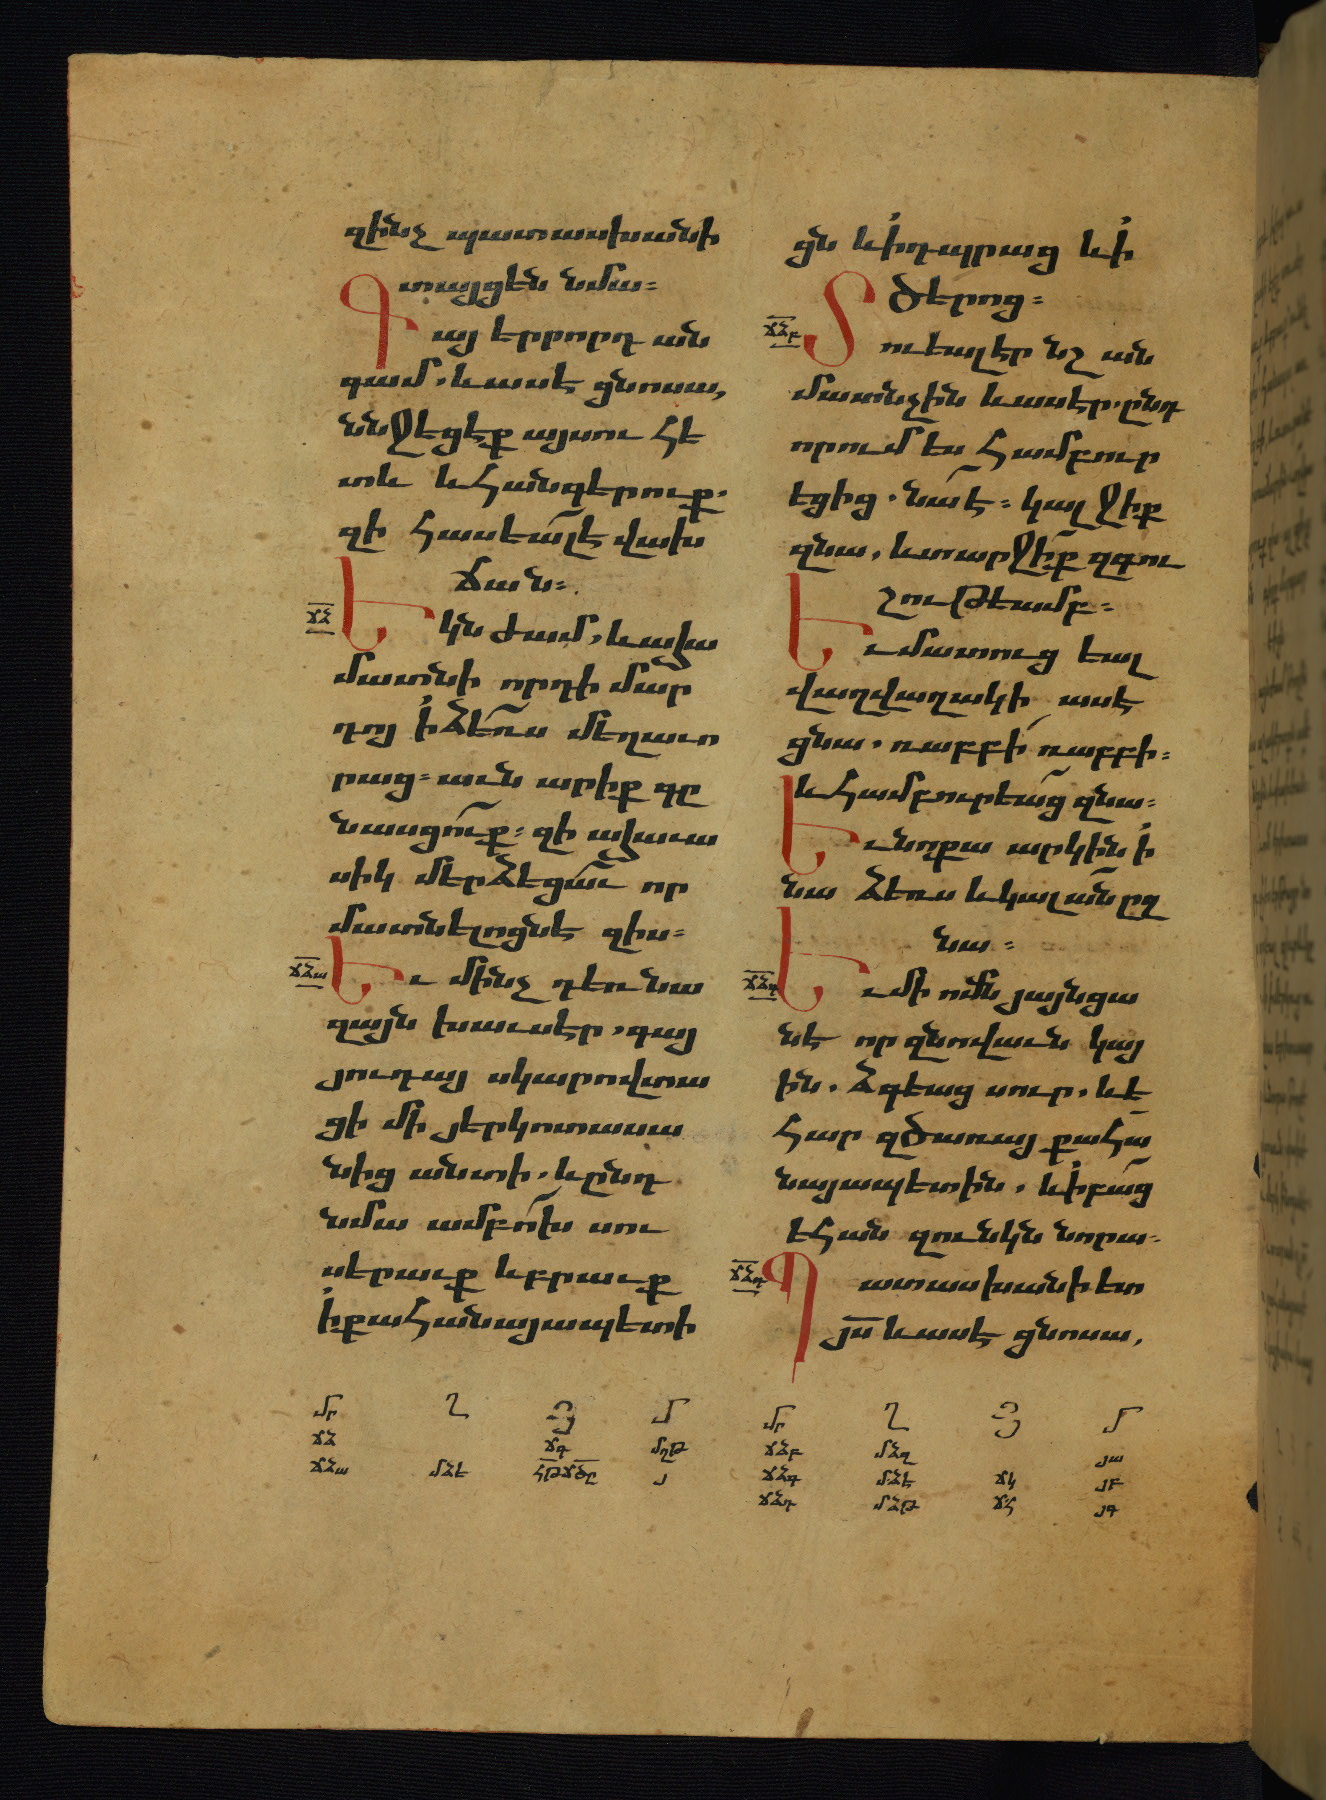 զինչ պատասխանի
տայցեն նմա։
Գայ երրորդ ան
գամ. և ասէ ցնոսա,
ննջեցէք այսու հե
տև և հանգերուք.
զի հասեալ է վախ
ճան։
ճձ
Եկն ժամ, և ահա
մատնի որդի մար
դոյ ի ձեռս մեղաւո
րաց։ աւն արիք գը
նասցուք։ զի ահաւա
սիկ մերձեցաւ որ
մատնելոցն է զիս։
ճձա
Եւ մինչ դեռ նա
զայն խաւսէր. գայ
յուդայ սկարովտա
ցի մի յերկոտասա
նից անտի. և ընդ
նմա ամբոխ սու
սերաւք և բրաւք
ի քահանայապետի
մր ղ յ մ
ճձ ճգ մղթ
ճձա մձէ հթ ճծը յ
ցն և ի դպրաց և ի
ծերոց։
ճձբ
Տուեալ էր նշ ան
մատնչին և ասէր. ընդ
որում ես համբուր
եցից. նա է։ կալ ջիք
զնա, և տարջիք զգու
շութեամբ։
Եւ մատուց եալ
վաղվաղակի ասէ
ցնա. ռաբբի ռաբբի։
և համբուրեաց զնա։
Եւ նոքա արկին ի
նա ձեռս և կալան ըզ
նա։
ճձգ
Եւ մի ոմն յայնցա
նէ որ զնովաւն կայ
ին. ձգեաց սուր. և է
հար զծառայ քահա
նայապետին. և ի բաց
եհան զունկն նորա։
ճձդ
Պատասխանի ետ
յս և ասէ ցնոսա,
մր ղ յ մ
ճձբ մձզ յա
ճձգ մձէ ճկ յբ
ճձդ մձթ ճհ յգ